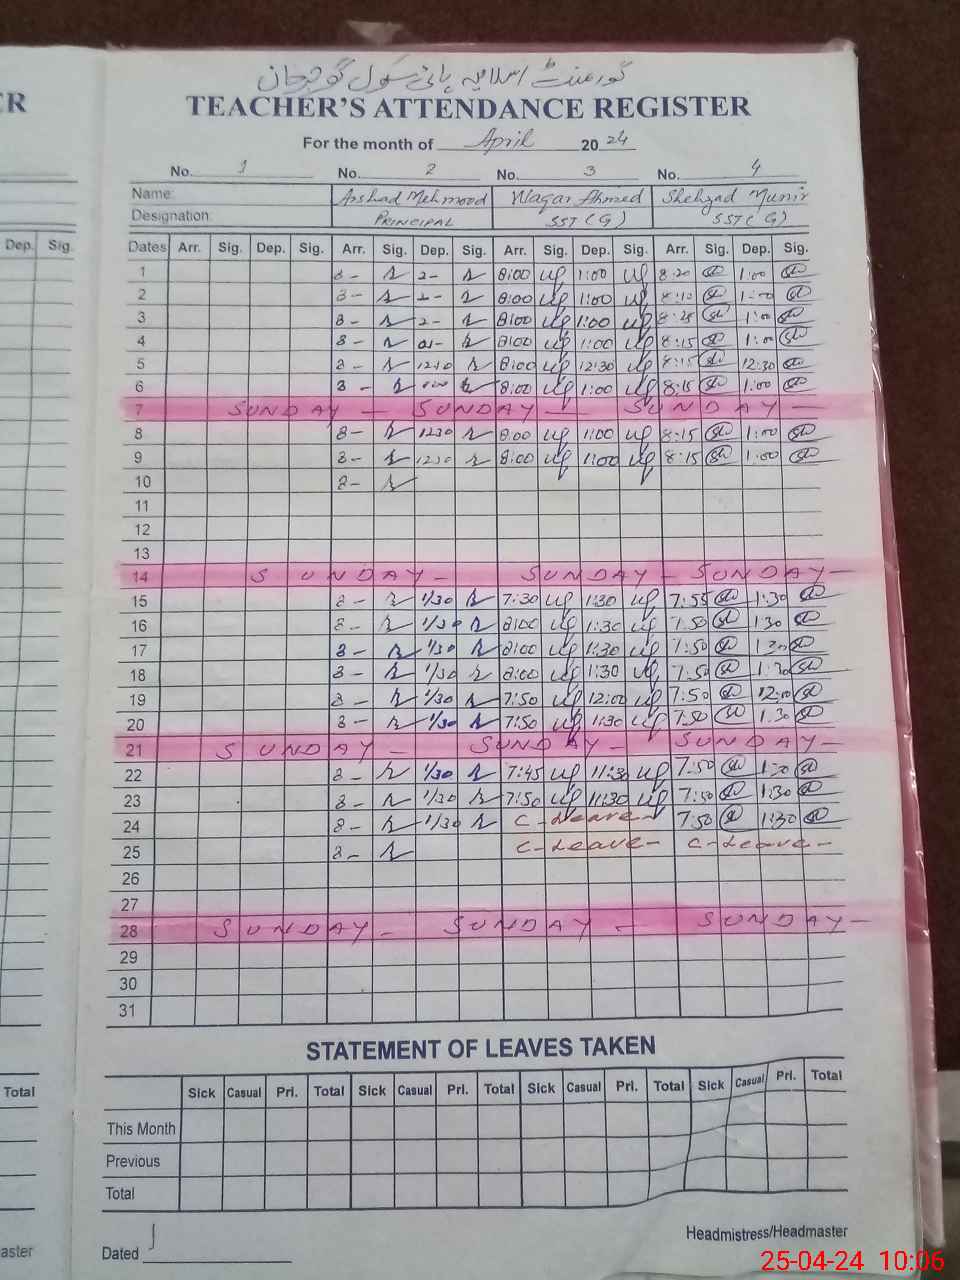 گورنمنٹ اسلامیہ ہائی سکول گوجرخان
ER
TEACHER'S ATTENDANCE REGISTER
For the month of April 20 24
No. 1 No. 2 No. 3 No. 4
Name: Arshad Mehmood Waqar Ahmed Shehzad Munir
Designation: PRINCIPAL SST (G) SST (G)
Dep. Sig. Dates Arr. Sig. Dep. Sig. Arr. Sig. Dep. Sig. Arr. Sig. Dep. Sig. Arr. Sig. Dep. Sig.
1 8- 2- 8:00 1:00 8:20 1:00
2 8- 2- 8:00 1:00 8:10 1:00
3 8- 2- 8:00 1:00 8:25 1:00
4 8- 01- 8:00 1:00 8:15 1:00
5 8- 1230 8:00 12:30 8:15 12:30
6 8- 8:00 1:00 8:15 1:00
7 SUNDAY - SUNDAY - SUNDAY -
8 8- 1230 8:00 1:00 8:15 1:00
9 8- 1230 8:00 1:00 8:15 1:00
10 8-
11
12
13
14 SUNDAY - SUNDAY - SUNDAY -
15 8- 1/30 7:30 1:30 7:55 1:30
16 8- 1/30 8:00 1:30 7:50 1:30
17 8- 1/30 8:00 1:30 7:50 1:30
18 8- 1/30 8:00 1:30 7:50 1:30
19 8- 1/30 7:50 12:00 7:50 12:00
20 8- 1/30 7:50 1:30 7:50 1:30
21 SUNDAY - SUNDAY - SUNDAY -
22 8- 1/30 7:45 11:30 7:50 1:30
23 8- 1/30 7:50 11:30 7:50 1:30
24 8- 1/30 C-Leave- 7:50 1:30
25 8- C-Leave- C-Leave-
26
27
28 SUNDAY - SUNDAY - SUNDAY -
29
30
31
STATEMENT OF LEAVES TAKEN
Total Sick Casual Pri. Total Sick Casual Pri. Total Sick Casual Pri. Total Sick Casual Pri. Total
This Month
Previous
Total
Headmistress/Headmaster
aster Dated
25-04-24 10:06